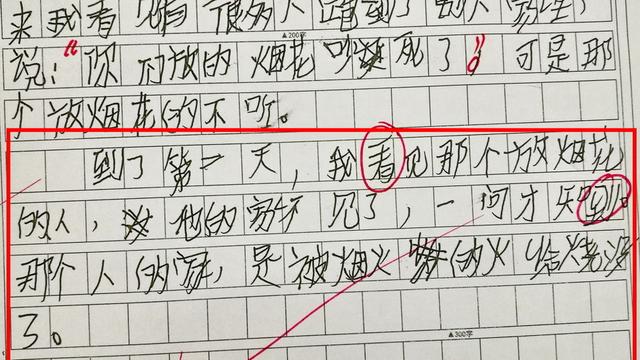 来我看见有很多人跑到了别人家里,
▲200字
说:“你们放的烟花吵死了!” 可是那
个放烟花的不听。
到了第二天,我看见那个放烟花
的人,他的家不见了,一问才知到。
那个人的家,是被烟火的火给烧没
了。
▲300字